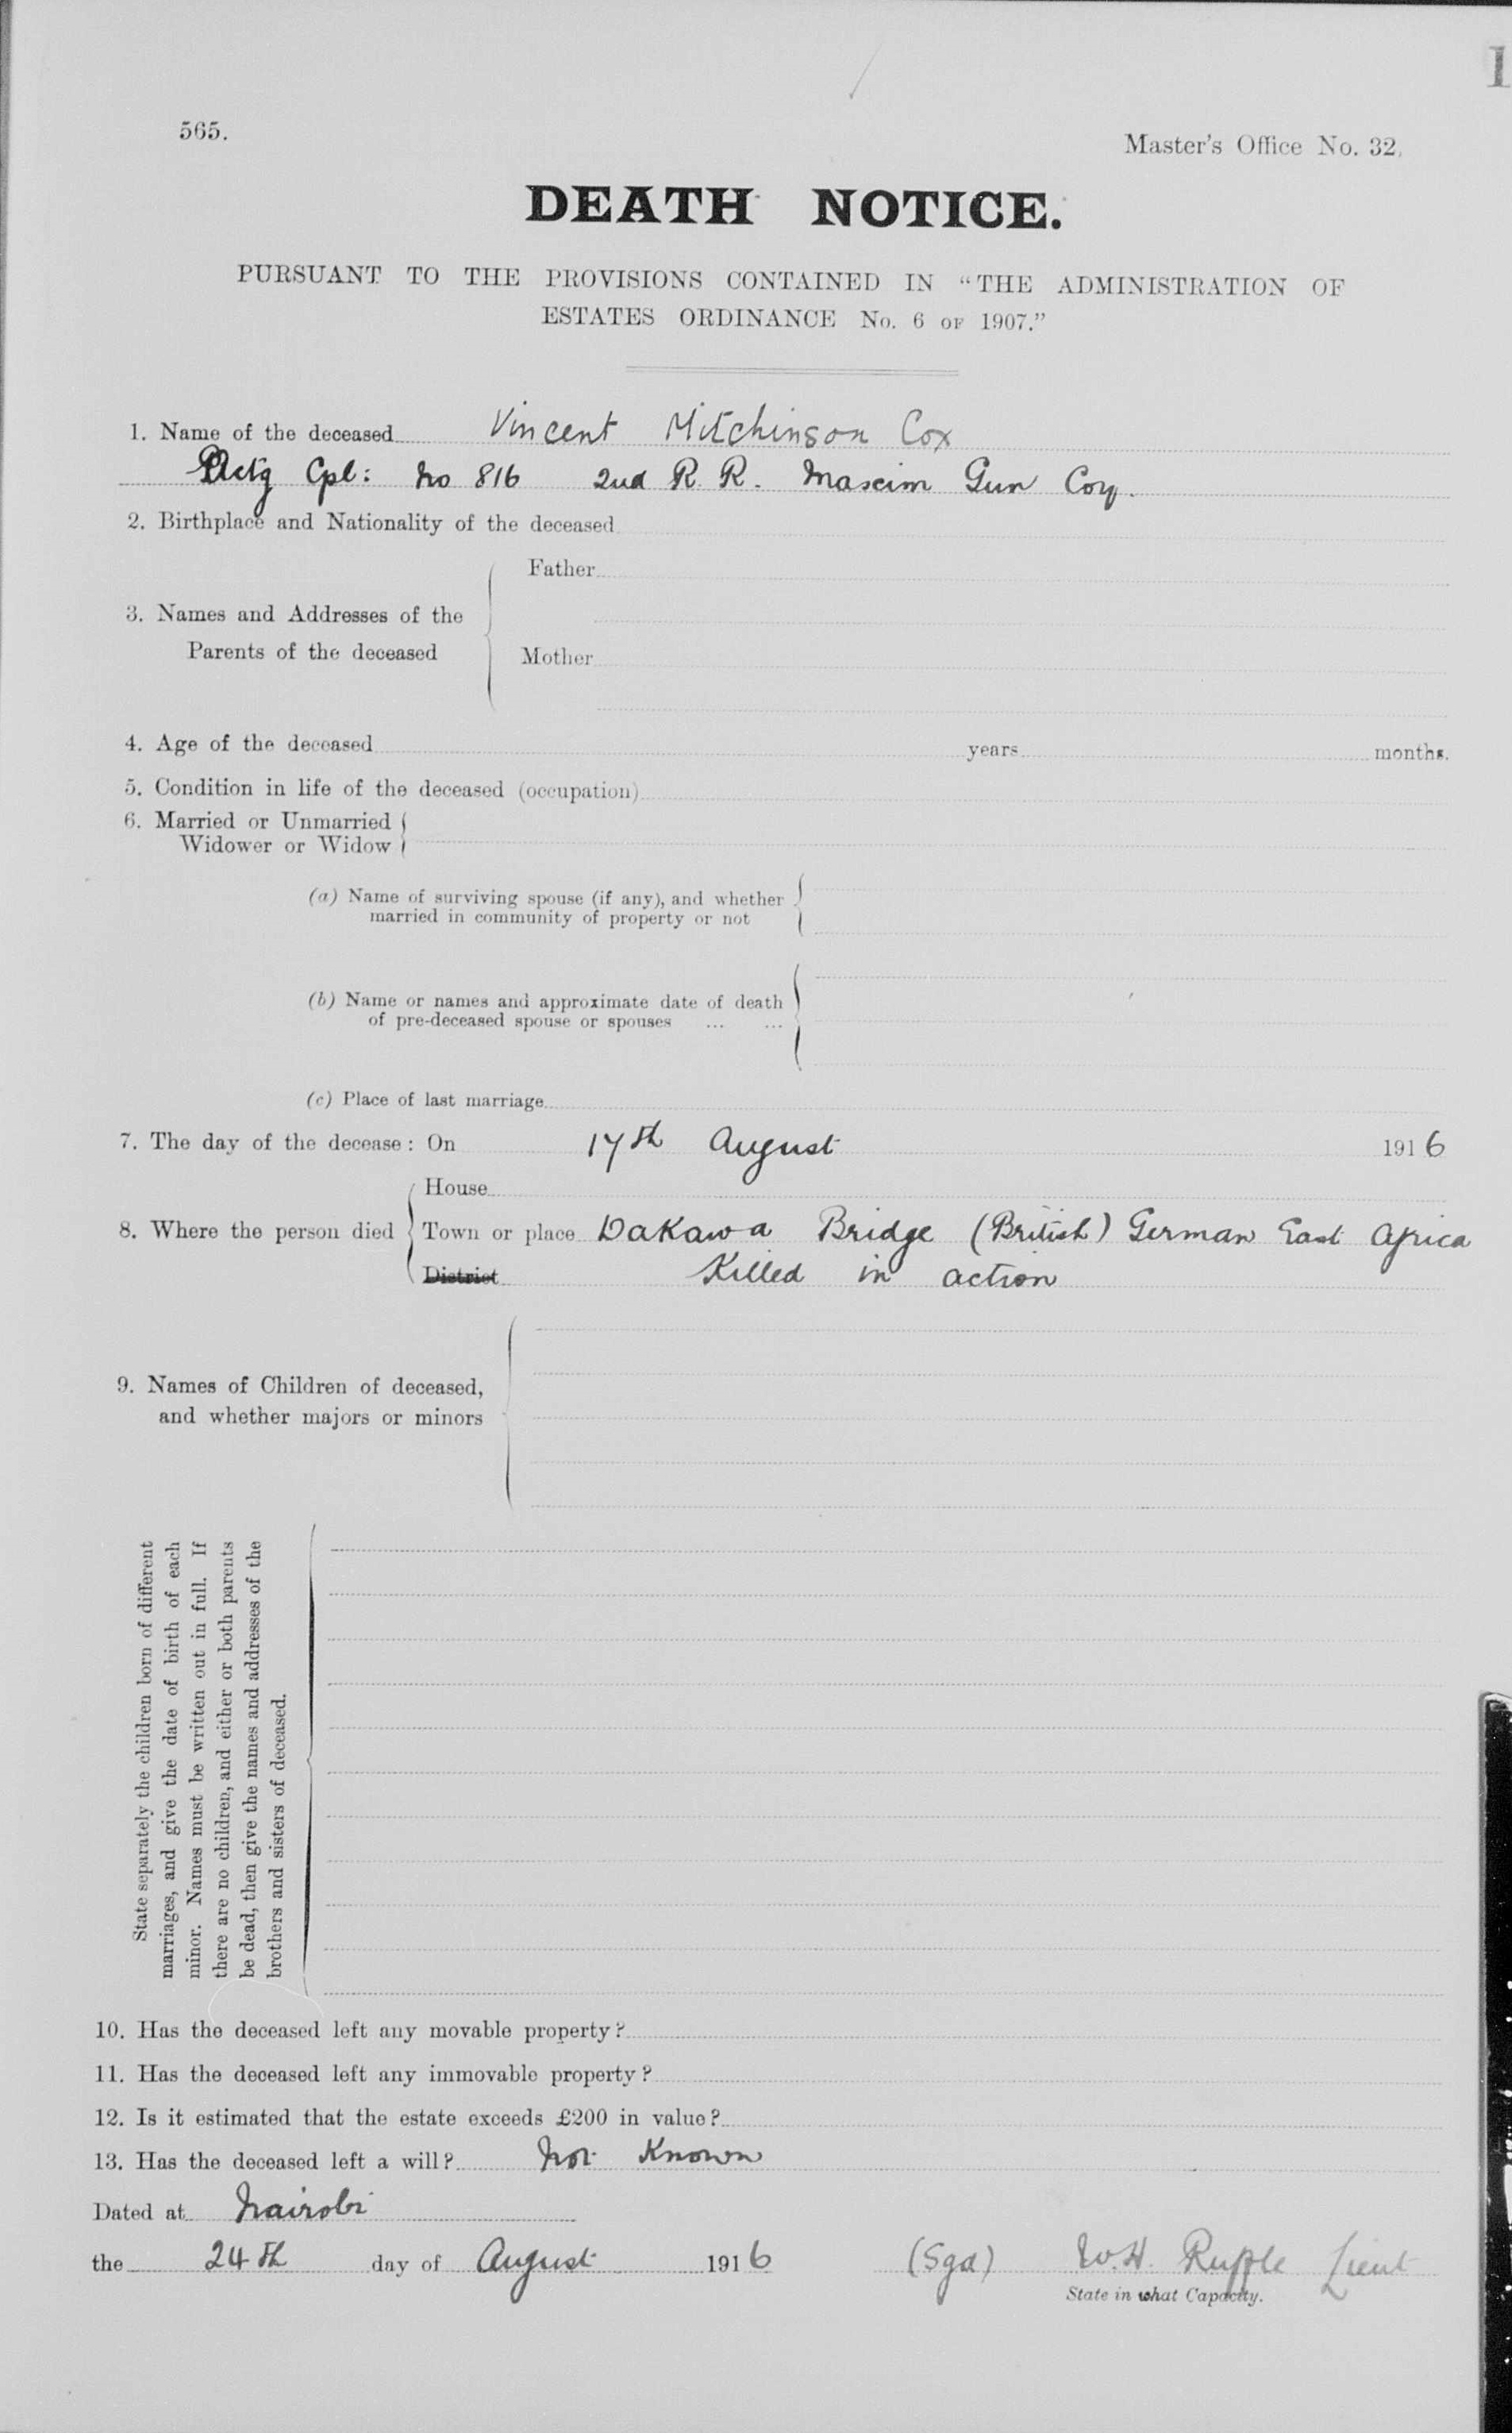 1
565.
Master's Office No. 32.
DEATH NOTICE.
PURSUANT TO THE PROVISIONS CONTAINED IN "THE ADMINISTRATION OF
ESTATES ORDINANCE No. 6 OF 1907."
1. Name of the deceased Vincent Mitchinson Cox
Actg Cpl: No 816 2nd R. R. Maxim Gun Coy.
2. Birthplace and Nationality of the deceased
3. Names and Addresses of the
Parents of the deceased
Father
Mother
4. Age of the deceased years months.
5. Condition in life of the deceased (occupation)
6. Married or Unmarried
Widower or Widow
(a) Name of surviving spouse (if any), and whether
married in community of property or not
(b) Name or names and approximate date of death
of pre-deceased spouse or spouses ... ...
(c) Place of last marriage
7. The day of the decease: On 17th August 1916
8. Where the person died
House
Town or place Dakawa Bridge (British) German East Africa
District Killed in action
9. Names of Children of deceased,
and whether majors or minors
State separately the children born of different
marriages, and give the date of birth of each
minor. Names must be written out in full. If
there are no children, and either or both parents
be dead, then give the names and addresses of the
brothers and sisters of deceased.
10. Has the deceased left any movable property?
11. Has the deceased left any immovable property?
12. Is it estimated that the estate exceeds £200 in value?
13. Has the deceased left a will? Not Known
Dated at Nairobi
the 24th day of August 1916 (Sgd) W.H. Lieut
State in what Capacity.